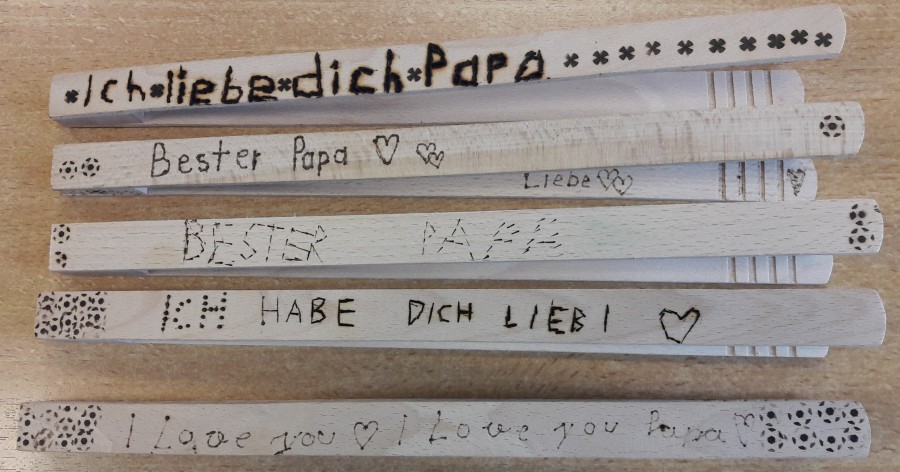 Ich liebe dich Papa
Bester Papa
Liebe
BESTER
ICH HABE DICH LIEBI
I Love you I Love you Papa